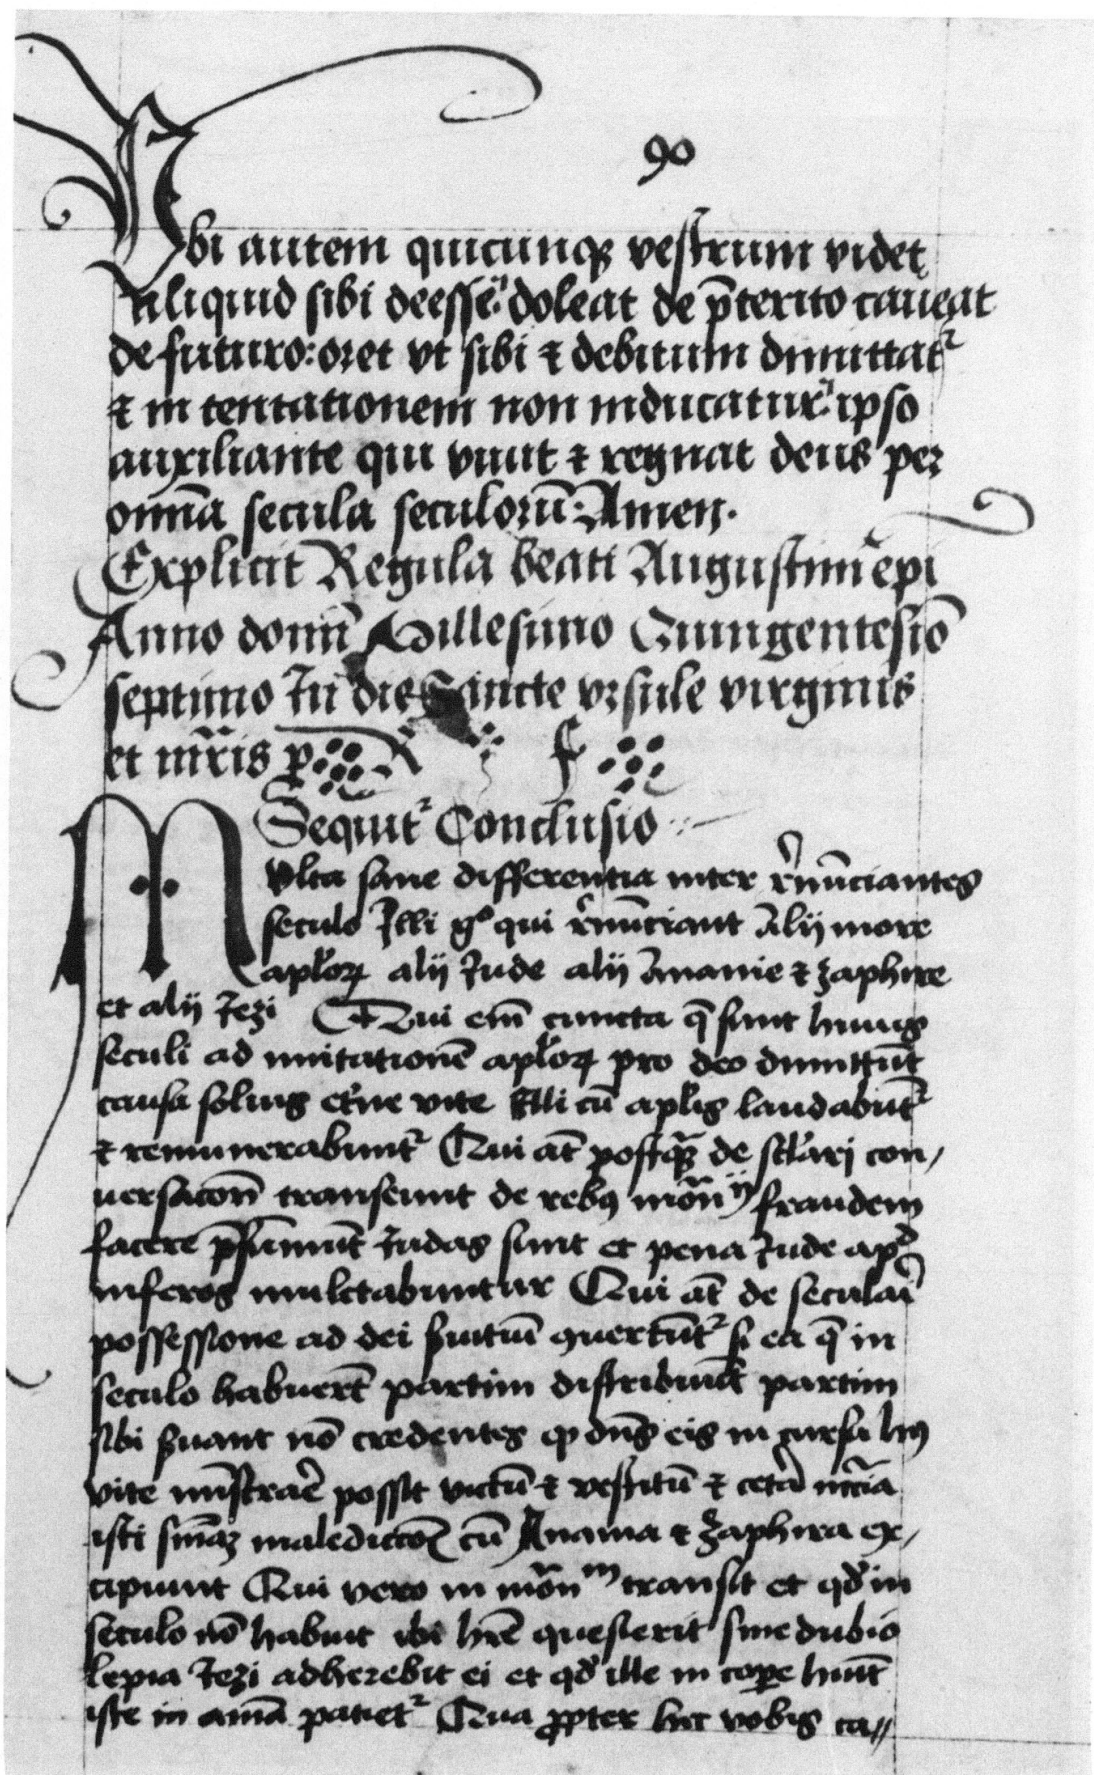 90
Ubi autem quicunqꝫ vestrum videt
Aliquid sibi deesse: doleat de p̄terito caueat
de futuro: oret vt sibi ⁊ debitum dimittat᷑
⁊ in tentationem non inducatur: ipso
auxiliante qui viuit ⁊ regnat deus per
omnia secula seculorū: Amen.
Explicit Regula beati Augustini ep̄i
Anno domī Millesimo Quingentesiō
septimo In die Sancte vrsule virginis
et mr̄is p. R F
Sequit᷑ Conclusio
Multa sane differentia inter r̄nūciantes
seculo Illi gͦ qui r̄nūciant Alij more
apl̄oꝝ alij Jude alij Ananie ⁊ zaphire
et alij Jezi Qui em̄ cuncta q̄ sunt huius
seculi ad imitationē apl̄oꝝ pro deo dimittūt
causa solius et̄ne vite Illi cū apl̄is laudabūt᷑
⁊ remunerabunt᷑ Qui aūt postqꝫ de sc̄lari con/
uersacōn transeunt de rebꝰ mōn̄ij fraudem
facere p̄sumūt Judas sunt et pena Jude apᵈ
inferos mulctabuntur Qui aūt de seculaī
possessione ad dei s̄uitiū ꝯuertūt᷑ si ea q̄ in
seculo habuerūt partim distribuūt partim
sibi s̄uant nō credentes ꝙ dn̄s eis in cursu hꝰ
vite mīstrare possit victū ⁊ vestitū ⁊ cetā nc̄cia
isti sn̄iaꝫ maledictōīs cū Anania ⁊ zaphira ex/
cipiunt Qui vero in mōn̄ᵐ transit et qd̄ in
seculo nō habuit ibi hr̄e quesierit sine dubio
lepra Jezi adherebit ei et qd̄ ille in corꝑe hūit
iste in aīma patiet᷑ Qua ꝓpter hic vobis ca//